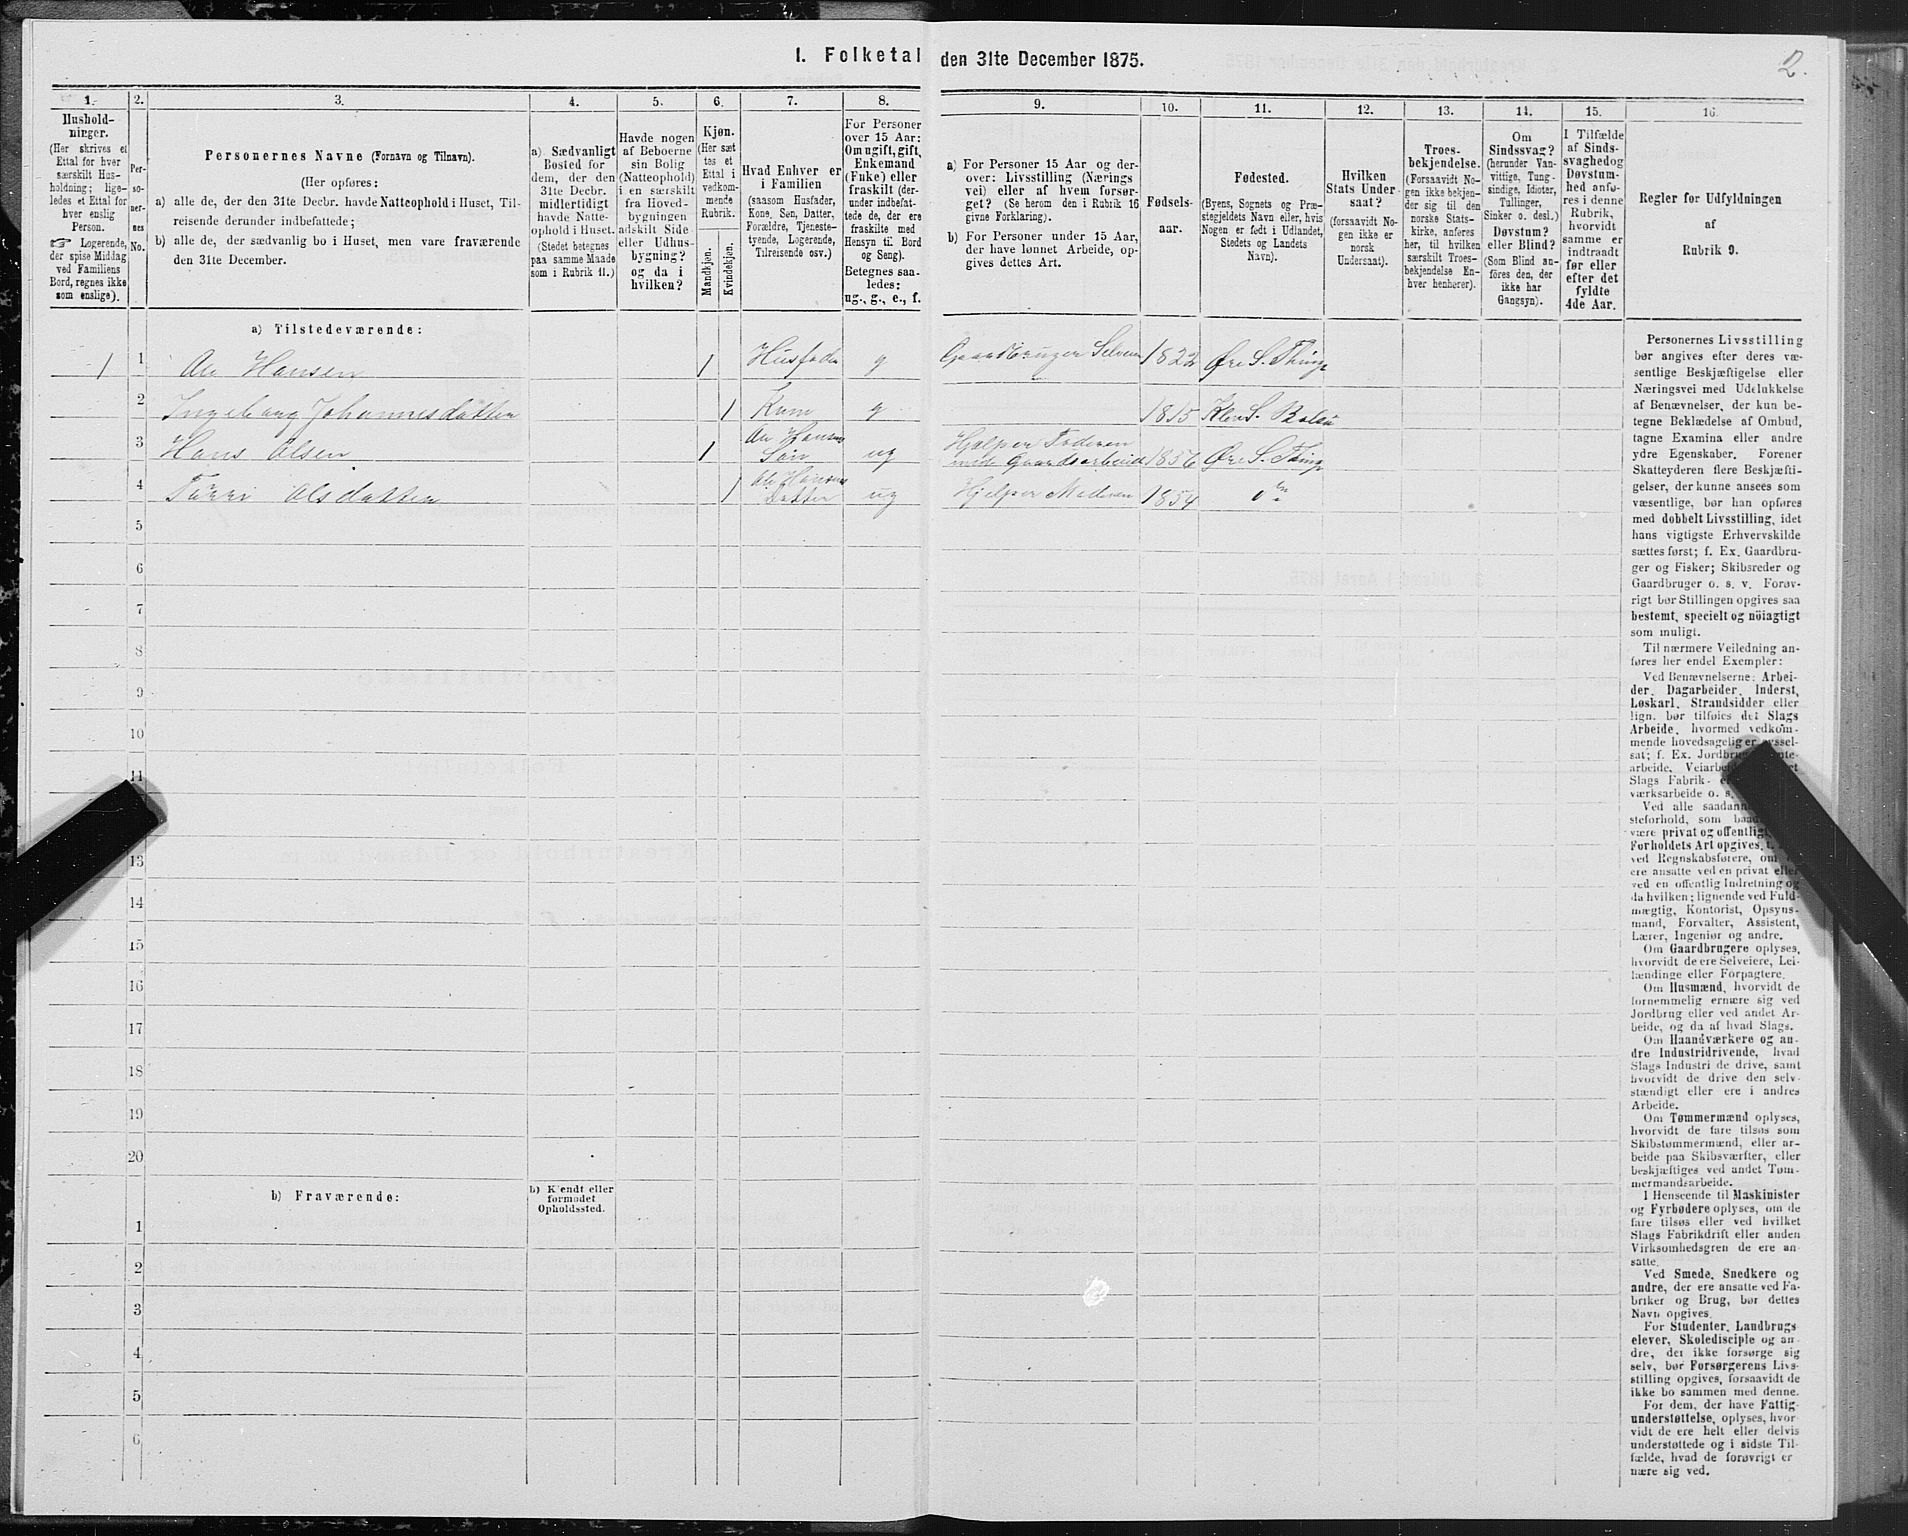 1. Folketal den 31te December 1875.
2.
1.
2.
3.
4.
5.
6.
7.
8.
9.
10.
11.
12.
13.
14.
15.
16.
Hushold-
ninger.
(Her skrives et
Ettal for hver
særskilt Hus-
holdning; lige-
ledes et Ettal for
hver enslig
Person.
☞ Logerende,
der spise Middag
ved Familiens
Bord, regnes ikke
som enslige).
Per-
so-
ner-
nes
No.
Personernes Navne (Fornavn og Tilnavn).
(Her opføres:
a) alle de, der den 31te Decbr. havde Natteophold i Huset, Til-
reisende derunder indbefattede;
b) alle de, der sædvanlig bo i Huset, men vare fraværende
den 31te December.
a) Sædvanligt
Bosted for
dem, der den
31te Decbr.
midlertidigt
havde Natte-
ophold i Huset.
(Stedet betegnes
paa samme Maade
som i Rubrik 11.)
Havde nogen
af Beboerne
sin Bolig
(Natteophold)
i en særskilt
fra Hoved-
bygningen
adskilt Side-
eller Udhus-
bygning?
og da i
hvilken?
Kjøn.
(Her sæt
tes et
Ettal i
vedkom-
mende
Rubrik.
Mandkjøn.
Kvindekjøn.
Hvad Enhver er
i Familien
(saasom Husfader,
Kone, Søn, Datter,
Forældre, Tjeneste-
tyende, Logerende,
Tilreisende osv.)
For Personer
over 15 Aar:
Om ugift, gift,
Enkemand
(Enke) eller
fraskilt (der-
under indbefat-
tede de, der ere
fraskilte med
Hensyn til Bord
og Seng).
Betegnes saa-
ledes:
ug., g., e., f.
a) For Personer 15 Aar og der-
over: Livsstilling (Nærings
vei) eller af hvem forsør-
get? (Se herom den i Rubrik 16
givne Forklaring).
b) For Personer under 15 Aar,
der have lønnet Arbeide, op-
gives dettes Art.
Fødsels-
aar.
Fødested.
(Byens, Sognets og Præ-
stegjeldets Navn eller, hvis
Nogen er født i Udlandet,
Stedets og Landets
Navn).
Hvilken
Stats Under
saat?
(forsaavidt No-
gen ikke er
norsk
Undersaat).
Troes-
bekjendelse.
(Forsaavidt No-
gen ikke bekjen-
der sig til den
norske Stats-
kirke, anføres
her, til hvilken
særskilt Troes-
bekjendelse En-
hver henhører).
Om
Sindssvag?
(herunder Van-
vittige, Tung-
sindige, Idioter,
Tullinger,
Sinker o. desl.)
Døvstum?
eller Blind?
(Som Blind an-
føres den, der
ikke har
Gangsyn).
I Tilfælde
af Sinds-
svaghed og
Døvstum-
hed anfø-
res i denne
Rubrik,
hvorvidt
samme er
indtraadt
før eller
efter det
fyldte
4de Aar.
Regler for Udfyldningen
af
Rubrik 9.
a) Tilstedeværende:
1 1 Ole Hansen 1 Husfader g Gaardbruger Selveier 1822 Øre S. Thing
2 Ingeborg Johannesdatter 1 Kone g 1815 S.
3 Hans Olsen 1 Ole Hansens Søn ug Hjælper Faderen med Gaardsarbeide 1856 Øre S. Thing
4 Olsdatter 1 Ole Hansens Datter ug Hjelper Moderen 1854
5
6
7
8
9
10
11
13
14
15
16
17
18
19
20
b) Fraværende:
b) Kjendt eller
formodet
Opholdssted.
1
2
3
4
5
6
Personernes Livsstilling
bør angives efter deres væ-
sentlige Beskjæftigelse eller
Næringsvei med Udelukkelse
af Benævnelser, der kun be-
tegne Beklædelse af Ombud,
tagne Examina eller andre
ydre Egenskaber. Forener
Skatteyderen flere Beskjæfti-
gelser, der kunne ansees som
væsentlige, bør han opføres
med dobbelt Livsstilling, idet
hans vigtigste Erhvervskilde
sættes først; f. Ex. Gaardbru-
ger og Fisker; Skibsreder og
Gaardbruger o. s. v. Forøv-
rigt bør Stillingen opgives saa
bestemt, specielt og nöiagtigt
som muligt.
Til nærmere Veiledning an-
føres her endel Exempler:
Ved Benævnelserne: Arbei-
der, Dagarbeider, Inderst,
Løskarl, Strandsidder eller
lign. bør tilføies det Slags
Arbeide, hvormed vedkom-
mende hovedsagelig er syssel-
sat; f. Ex.
arbeide,
Slags Fabrik-
værksarbeide o. s.
Ved alle
steforhold, som
være privat og offentlig,
Forholdets Art opgives,
ved Regnskabsførere, om
ere ansatte ved en privat eller
ved en offentlig Indretning og
da hvilken; lignende ved Fuld-
mægtig, Kontorist, Opsyns-
mand, Forvalter, Assistent,
Lærer, Ingeniør og andre.
Om Gaardbrugere oplyses,
hvorvidt de ere Selveiere, Lei-
lændinge eller Forpagtere.
Om Husmænd, hvorvidt de
fornemmelig ernære sig ved
Jordbrug eller ved andet Ar-
beide, og da af hvad Slags.
Om Haandværkere og an-
dre Industridrivende, hvad
Slags Industri de drive, samt
hvorvidt de drive den selv-
stændigt eller ere i andres
Arbeide.
Om Tømmermænd oplyses,
hvorvidt de fare tilsøs som
Skibstømmermænd, eller ar-
beide paa Skibsværfter, eller
beskjæftiges ved andet Tøm-
mermandsarbeide.
I Henseende til Maskinister
og Fyrbødere oplyses, om de
fare tilsøs eller ved hvilket
Slags Fabrikdrift eller anden
Virksomhedsgren de ere an-
satte.
Ved Smede, Snedkere og
andre, der ere ansatte ved Fa-
briker og Brug, bør dettes
Navn opgives.
For Studenter, Landbrugs
elever, Skoledisciple og an-
dre, der ikke forsørge sig
selv, bør Forsørgerens Livs-
stilling opgives, forsaavidt de
ikke bo sammen med denne.
For dem, der have Fattig-
understøttelse, oplyses, hvor-
vidt de ere helt eller delvis
understøttede og i sidste Til-
fælde, hvad de forøvrigt er
nære sig ved.